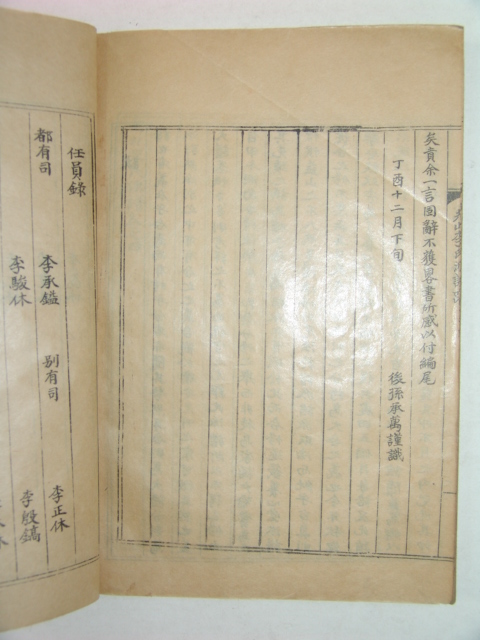 矣責余一言固辭不獲畧書所感以付編尾
丁酉十二月下旬
後孫承萬謹識
任員錄
都有司
李承鎰
李駿休
別有司
李正休
李殷鎬